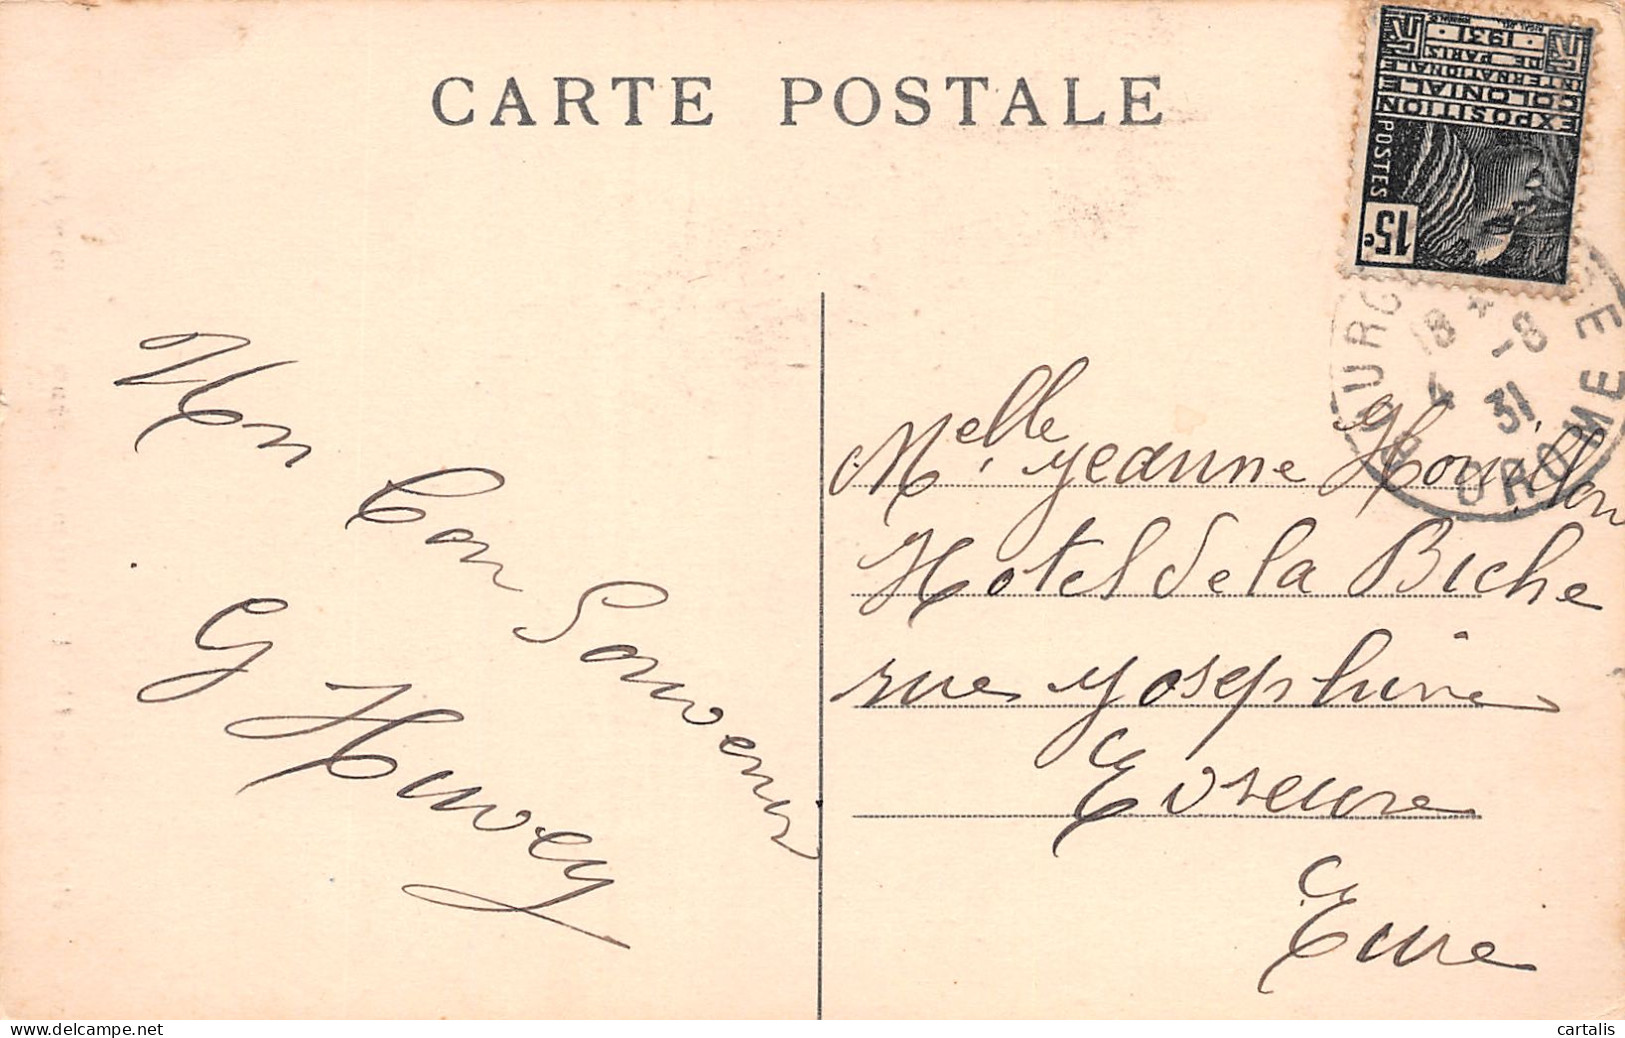 CARTE POSTALE
EXPOSITION
COLONIALE
INTERNATIONALE
DE PARIS
1931
POSTES
15c
18 * -8
4 31
DROME
Un Bon Souvenir
G Huvey
Melle Jeanne Houillon
Hotel de la Biche
rue Josephine
Evreux
Eure
cartalis